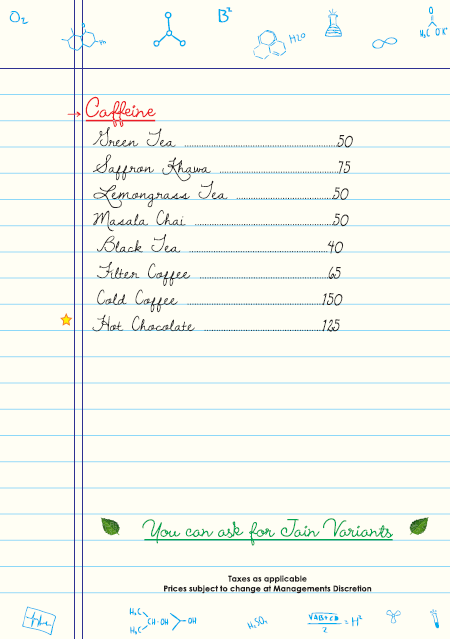 O₂
B²
H2O
H₃C OR
Caffeine
Green Tea ........ 50
Saffron Khawa ........ 75
Lemongrass Tea ........ 50
Masala Chai ........ 50
Black Tea ........ 40
Filter Coffee ........ 65
Cold Coffee ........ 150
Hot Chocolate ........ 125
You can ask for Jain Variants
Taxes as applicable
Prices subject to change at Managements Discretion
H₃C
CH-OH
OH
H₃C
H₂SO₄